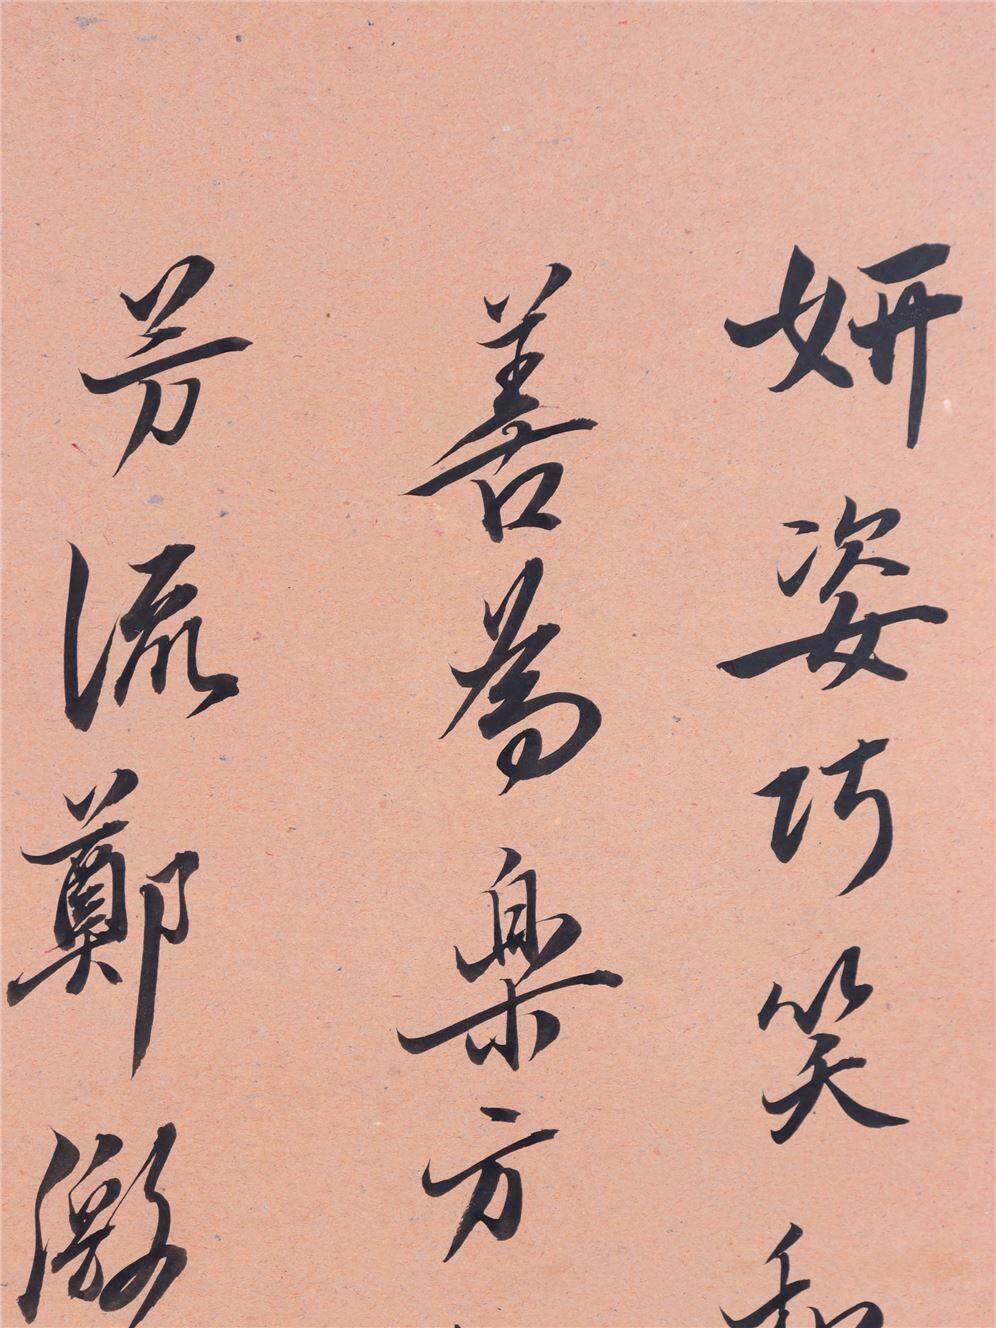 妍姿巧笑和
善為樂方
芳流鄭激